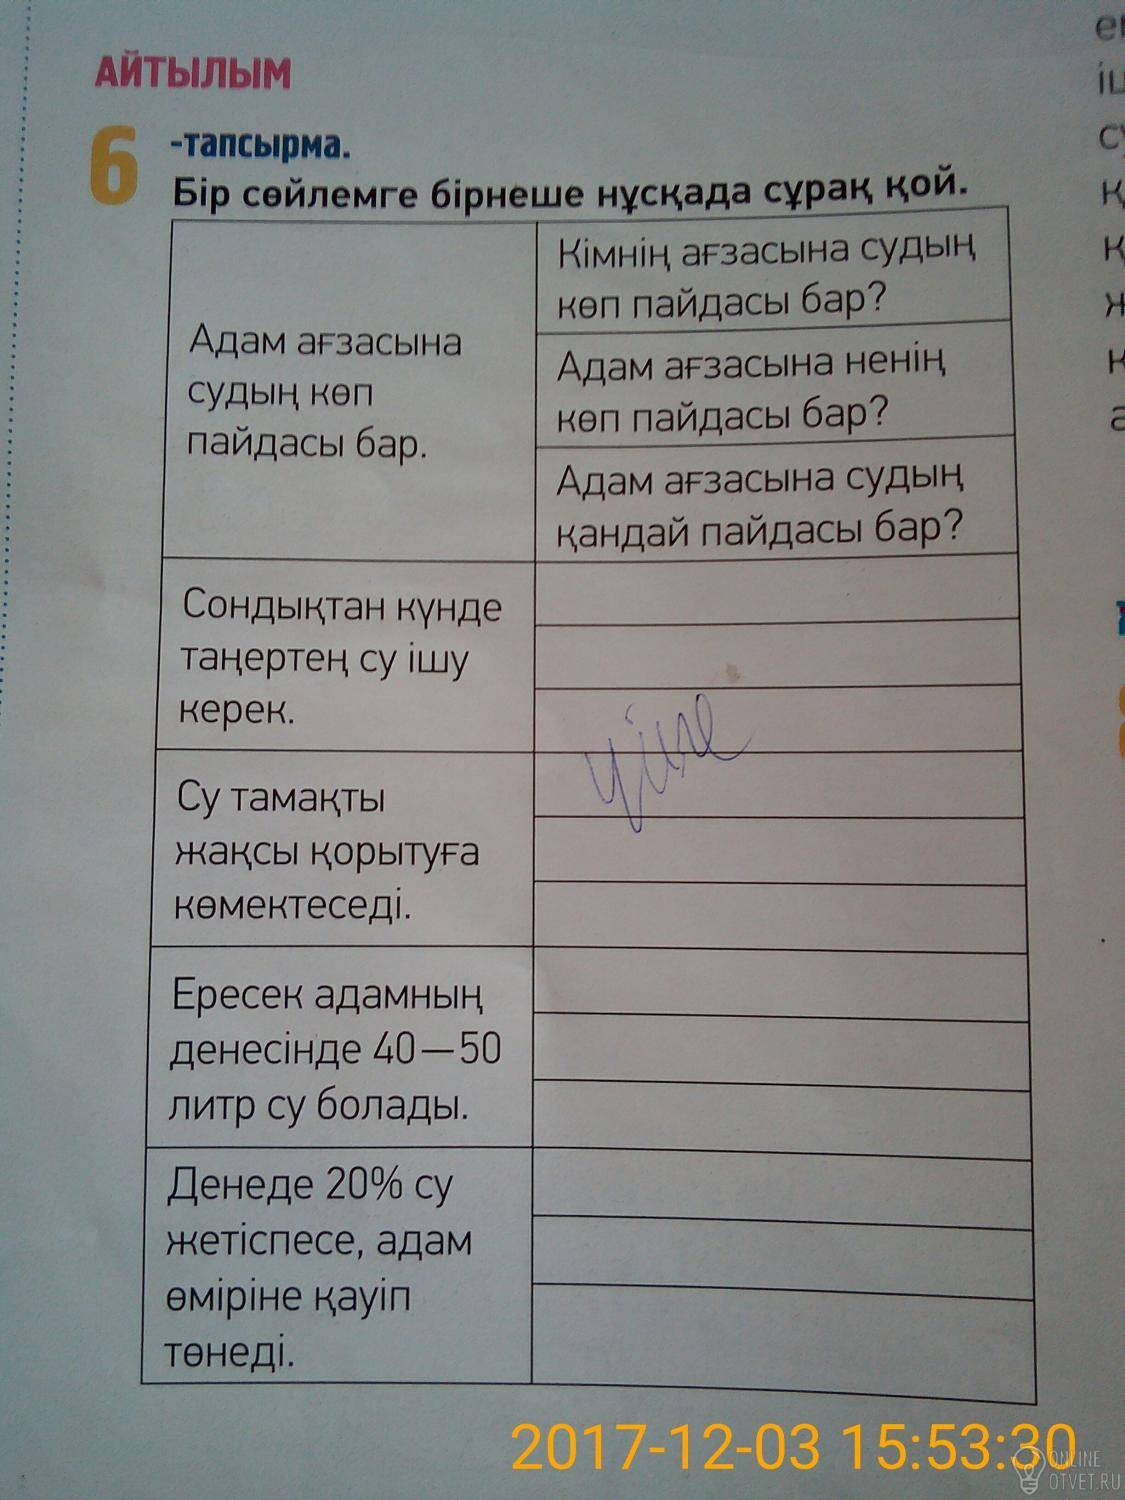 АЙТЫЛЫМ
6
-тапсырма.
Бір сөйлемге бірнеше нұсқада сұрақ қой.
Адам ағзасына
судың көп
пайдасы бар.
Кімнің ағзасына судың
көп пайдасы бар?
Адам ағзасына ненің
көп пайдасы бар?
Адам ағзасына судың
қандай пайдасы бар?
Сондықтан күнде
таңертең су ішу
керек.
Су тамақты
жақсы қорытуға
көмектеседі.
Ересек адамның
денесінде 40—50
литр су болады.
Денеде 20% су
жетіспесе, адам
өміріне қауіп
төнеді.
2017-12-03 15:53:30
ONLINE
OTVET.RU